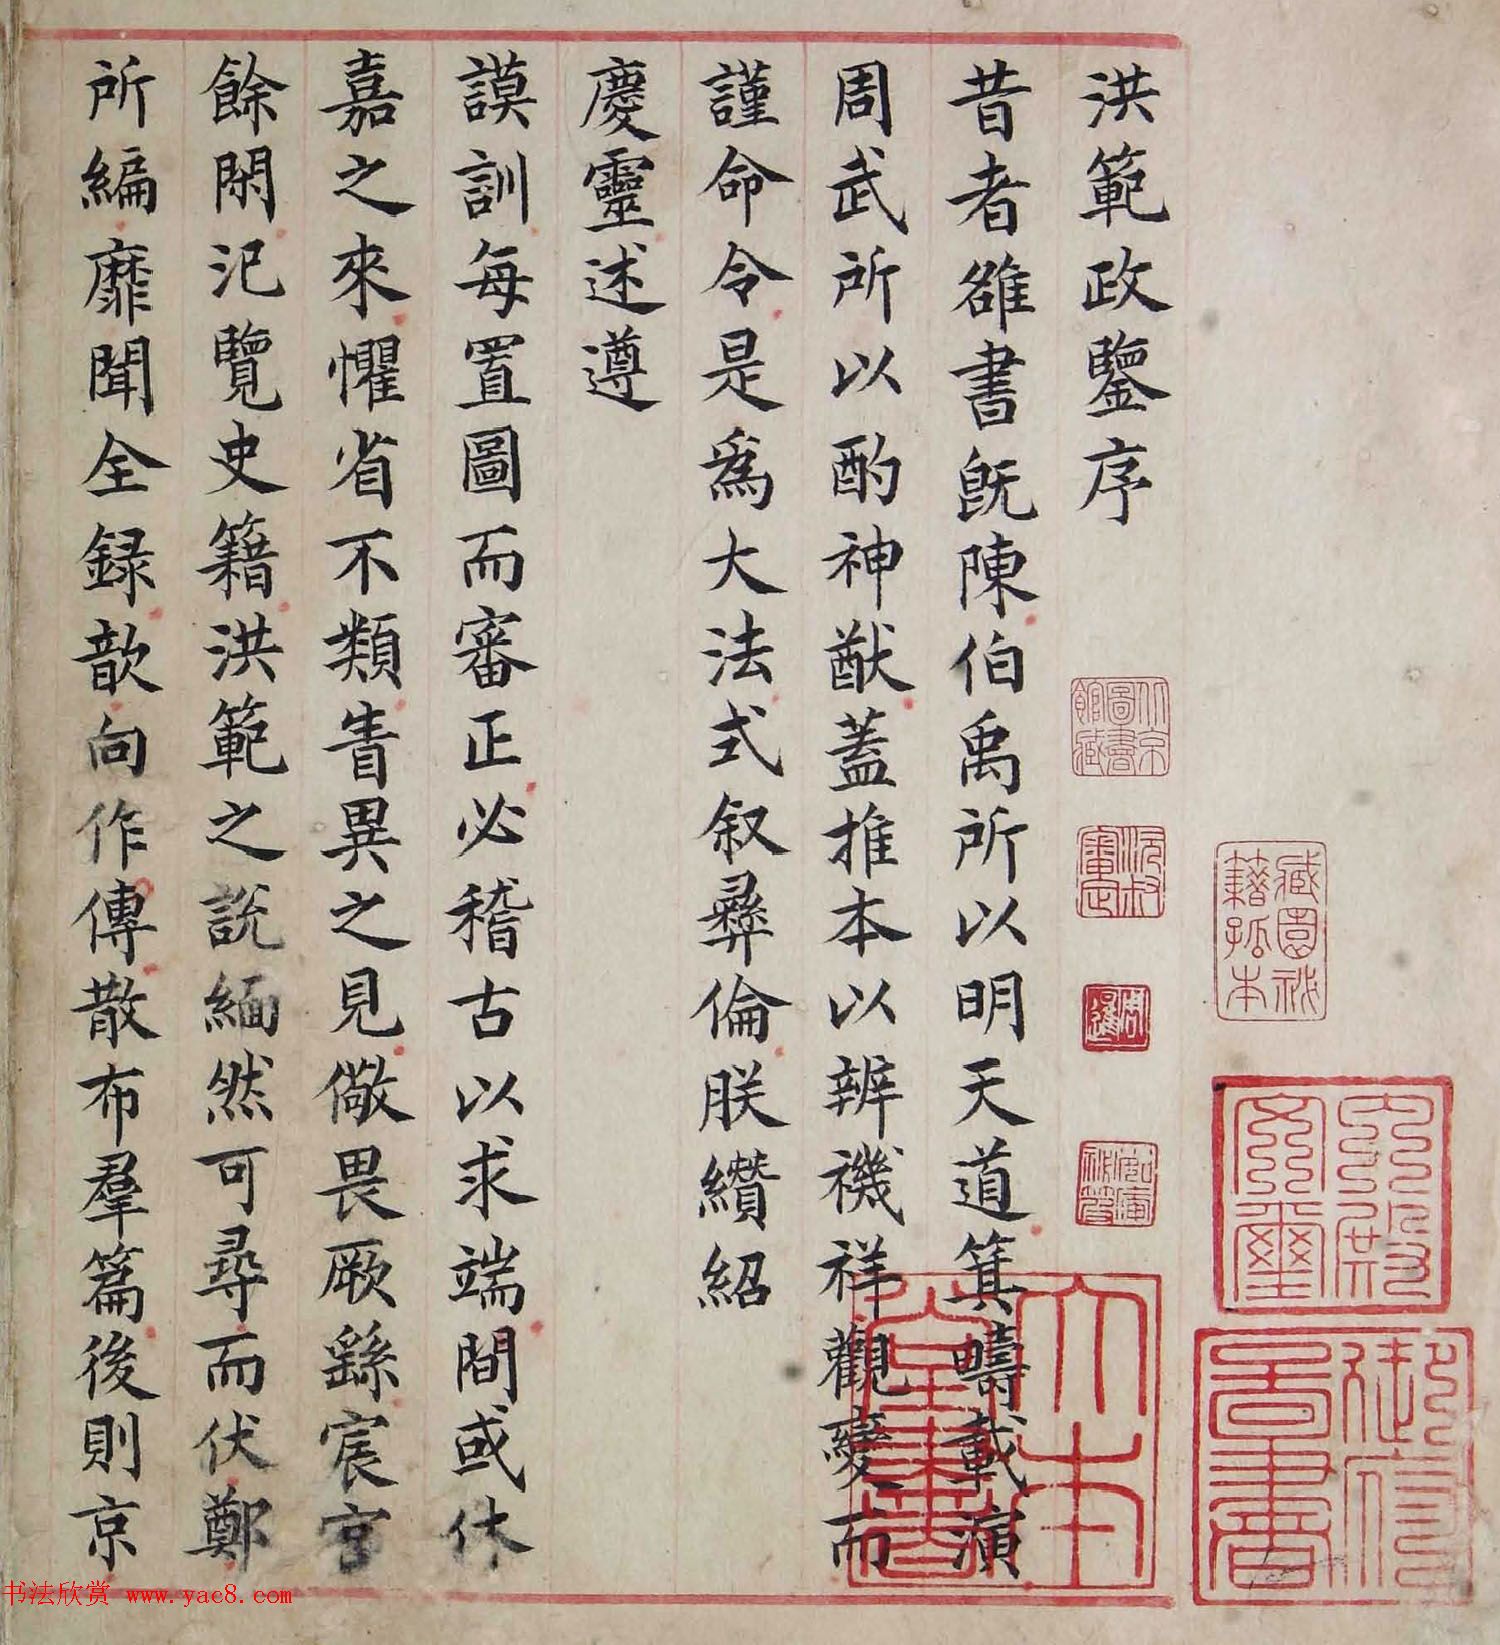 洪範政鑒序
昔者雒書既陳伯禹所以明天道箕疇載演
周武所以酌神猷蓋推本以辨禨祥觀變而
謹命令是爲大法式叙彞倫朕纘紹
慶靈述遵
謨訓每置圖而審正必稽古以求端間或休
嘉之來懼省不類眚異之見儆畏厥繇宸宫
餘閑氾覽史籍洪範之說緬然可尋而伏鄭
所編靡聞全録歆向作傳散布羣篇後則京
北京圖書館藏
周暹
藏園祕籍孤本
內殿文璽
御府圖書
書法欣赏 www.yac8.com